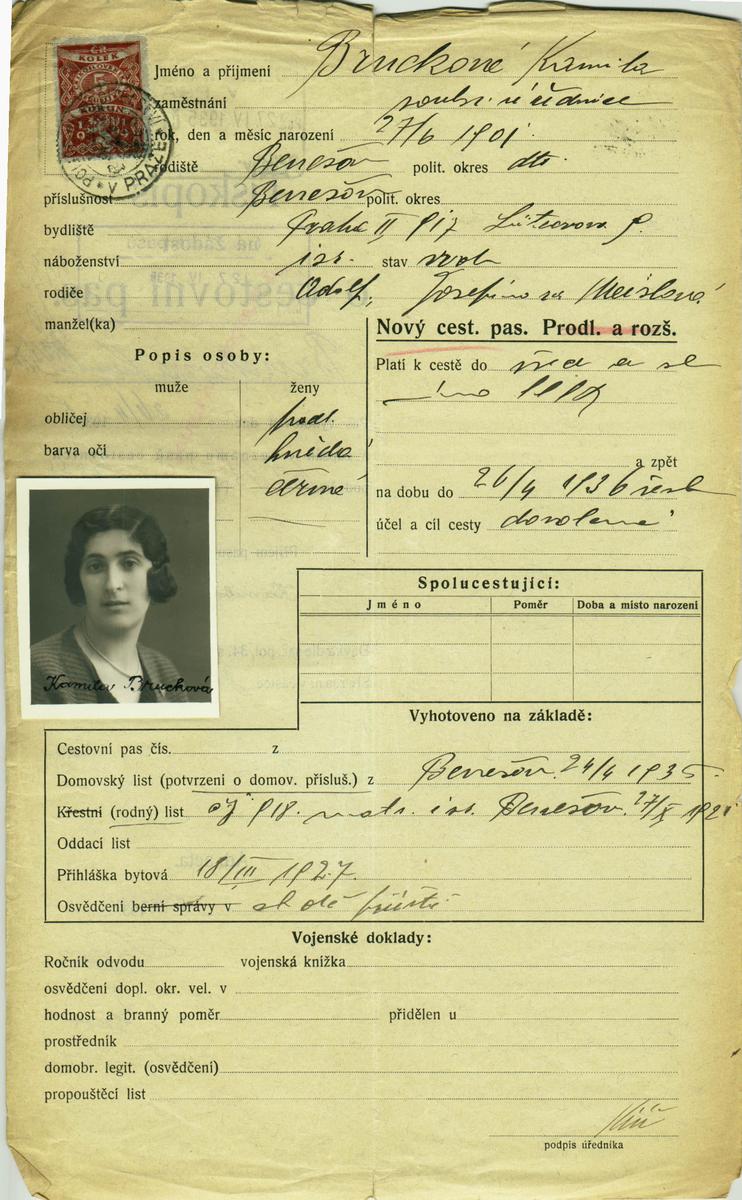 Č.R.
KOLEK
5
KORUN
V PRAZE
Jméno a příjmení Bruckové Kamila
zaměstnání soukr. úřednice
rok, den a měsíc narození 27/6 1901
rodiště Benešov polit. okres dto.
příslušnost Benešov polit. okres
bydliště Praha II 917
náboženství isr. stav svob
rodiče Adolf, Josefina Meislová
manžel(ka)
Popis osoby:
muže ženy
obličej podl.
barva očí hnědá
černé
Nový cest. pas. Prodl. a rozš.
Platí k cestě do
a zpět
na dobu do 26/4 1936
účel a cíl cesty dovolená
Kamila Brucková
Spolucestující:
Jméno Poměr Doba a místo narození
Vyhotoveno na základě:
Cestovní pas čís. z
Domovský list (potvrzení o domov. přísluš.) z Benešov 24/4 1935
Křestní (rodný) list čj 918. matr. isr. Benešov 27/X
Oddací list
Přihláška bytová 18/III 1927.
Osvědčení berní správy v
Vojenské doklady:
Ročník odvodu vojenská knížka
osvědčení dopl. okr. vel. v
hodnost a branný poměr přidělen u
prostředník
domobr. legit. (osvědčení)
propouštěcí list
podpis úředníka